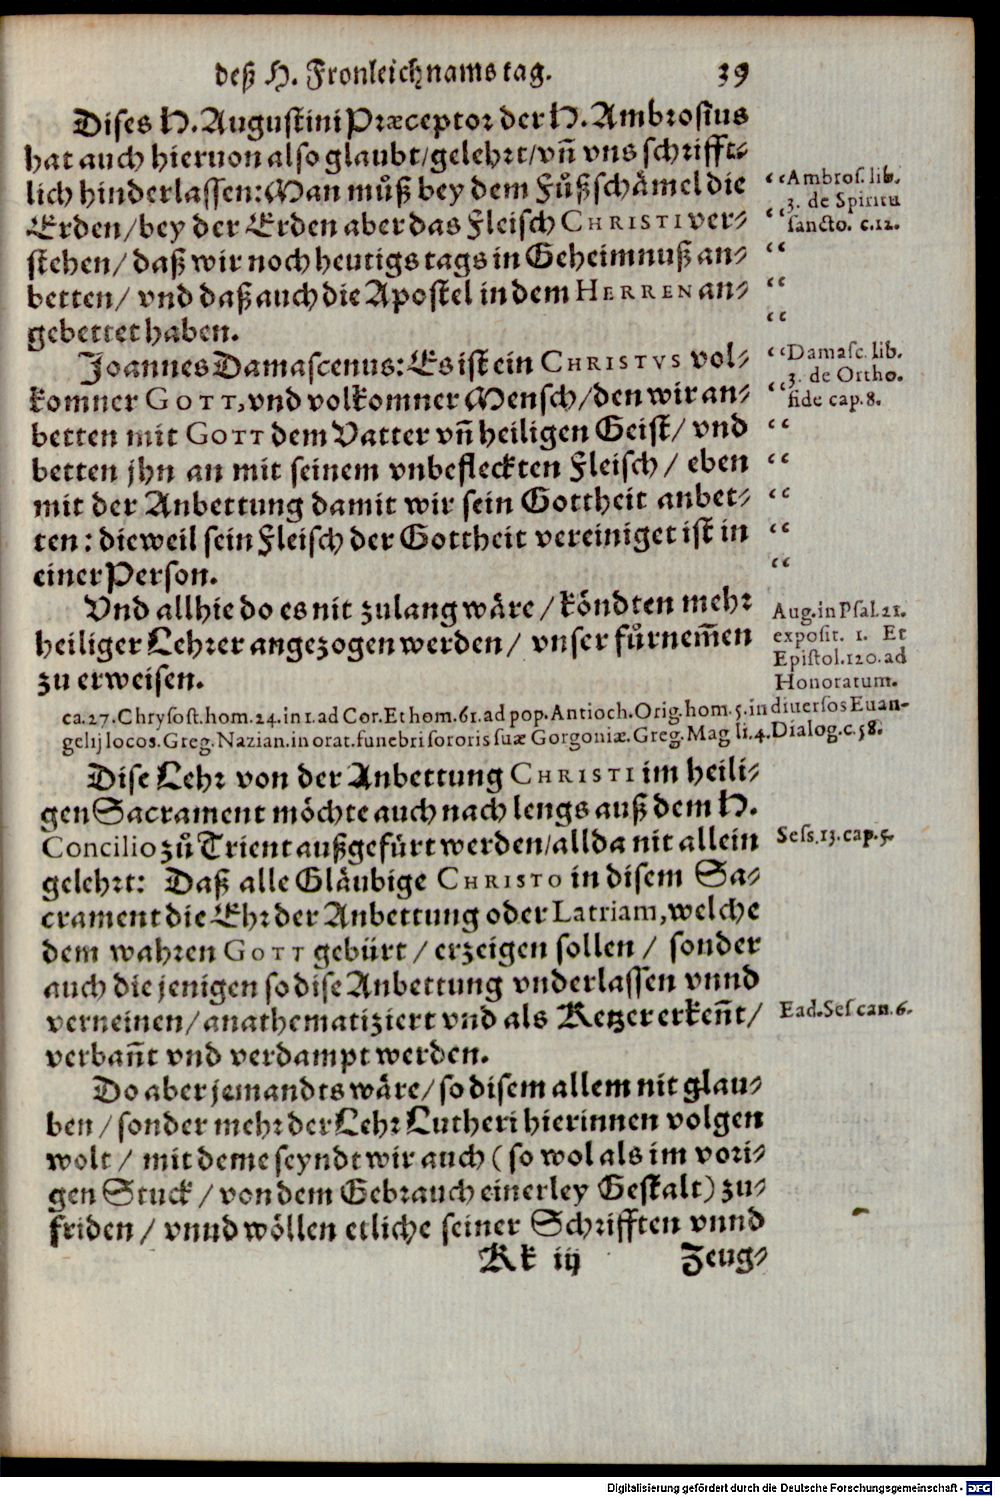 deß H. Fronleichnams tag. 39
Dises H. Augustini Præceptor der H. Ambrosius
hat auch hieruon also glaubt/gelehrt/vñ vns schrifft⸗
lich hinderlassen: Man můß bey dem Fůßschämel die
Erden/bey der Erden aber das Fleisch CHRISTI ver⸗
stehen/ daß wir noch heutigs tags in Geheimnuß an⸗
betten/ vnd daß auch die Apostel in dem HERREN an⸗
gebettet haben.
“ “Ambros. lib.
3. de Spiritu
“ sancto. c.12.
“
“
“
Joannes Damascenus: Es ist ein CHRISTVS vol⸗
komner GOTT, vnd volkomner Mensch/den wir an⸗
betten mit GOTT dem Vatter vñ heiligen Geist/ vnd
betten jhn an mit seinem vnbefleckten Fleisch/ eben
mit der Anbettung damit wir sein Gottheit anbet⸗
ten: dieweil sein Fleisch der Gottheit vereiniget ist in
einer Person.
“ “Damasc. lib.
3. de Ortho.
“ fide cap.8.
“
“
“
“
“
Vnd allhie do es nit zulang wäre/köndten mehr
heiliger Lehrer angezogen werden/ vnser fůrnem̃en
zu erweisen.
Aug. in Psal.21.
exposit. 1. Et
Epistol.120. ad
Honoratum.
ca.27. Chrysost. hom.24. in 1. ad Cor. Et hom.61. ad pop. Antioch. Orig. hom.5. in diuersos Euan-
gelij locos. Greg. Nazian. in orat. funebri sororis suæ Gorgoniæ. Greg. Mag li.4. Dialog. c.58.
Dise Lehr von der Anbettung CHRISTI im heili⸗
gen Sacrament möchte auch nach lengs auß dem H.
Concilio zů Trient außgefürt werden/allda nit allein
gelehrt: Daß alle Gläubige CHRISTO in disem Sa⸗
crament die Ehr der Anbettung oder Latriam, welche
dem wahren GOTT gebürt/ erzeigen sollen/ sonder
auch die jenigen so dise Anbettung vnderlassen vnnd
verneinen/anathematiziert vnd als Ketzer erkeñt/
verbañt vnd verdampt werden.
Sess.13. cap.5.
Ead. Ses can.6.
Do aber jemandts wäre/so disem allem nit glau⸗
ben/sonder mehr der Lehr Lutheri hierinnen volgen
wolt/ mit deme seyndt wir auch (so wol als im vori⸗
gen Stuck/von dem Gebrauch einerley Gestalt) zu⸗
friden/ vnnd wöllen etliche seiner Schrifften vnnd
Kk iij Zeug⸗
Digitalisierung gefördert durch die Deutsche Forschungsgemeinschaft - DFG